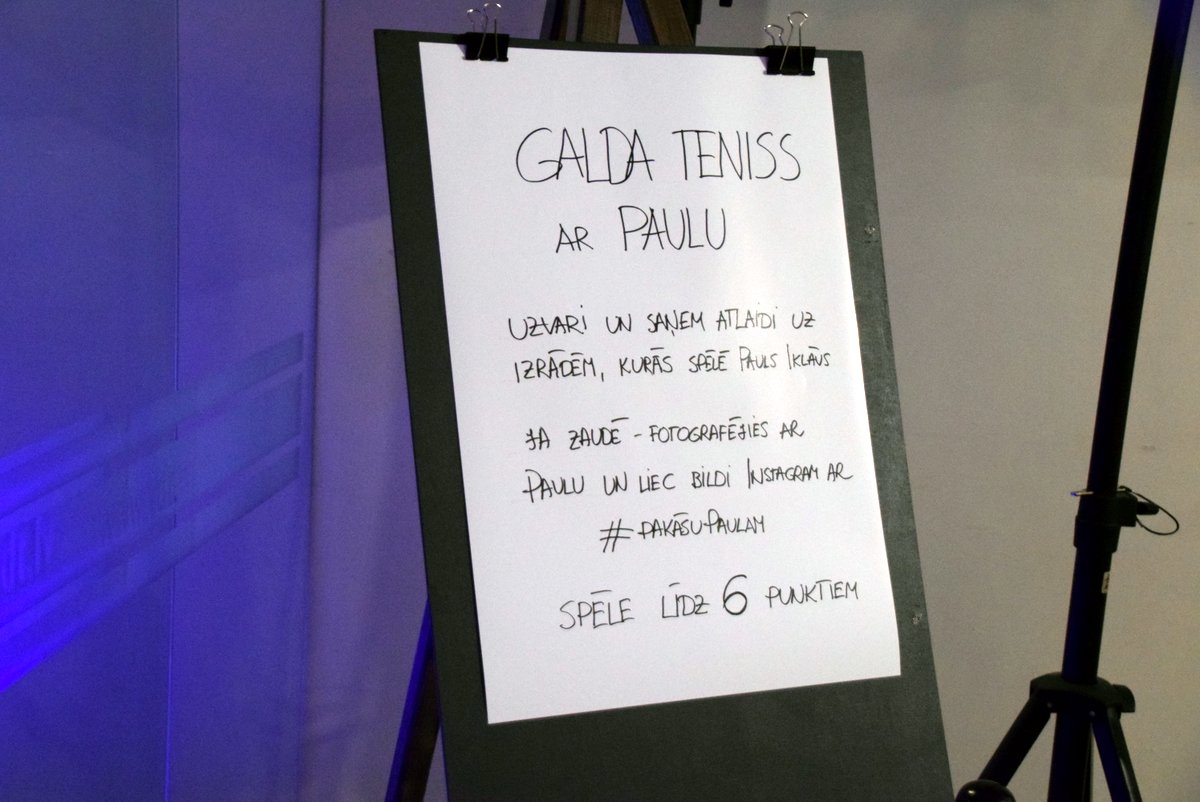 GALDA TENISS
AR PAULU
UZVARI UN SAŅEM ATLAIDI UZ
IZRĀDĒM, KURĀS SPĒLĒ PAULS IKLĀVS
JA ZAUDĒ - FOTOGRAFĒJIES AR
PAULU UN LIEC BILDI INSTAGRAM AR
#PAKĀSUPAULAM
SPĒLE LĪDZ 6 PUNKTIEM